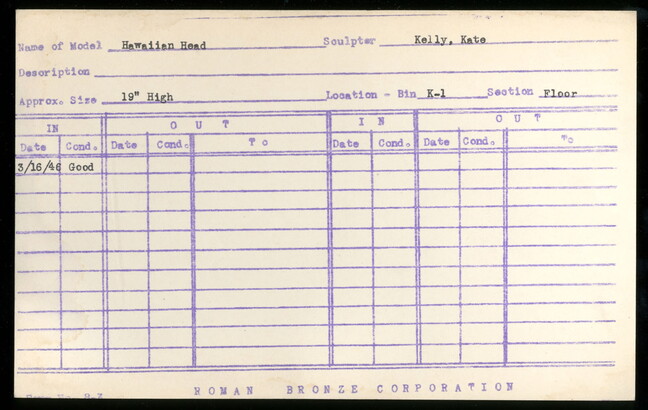 Name of Model Hawaiian Head Sculptor Kelly, Kate
Description
Approx. Size 19" High Location - Bin K-1 Section Floor
IN OUT IN OUT
Date Cond. Date Cond. To Date Cond. Date Cond. To
3/16/46 Good
ROMAN BRONZE CORPORATION